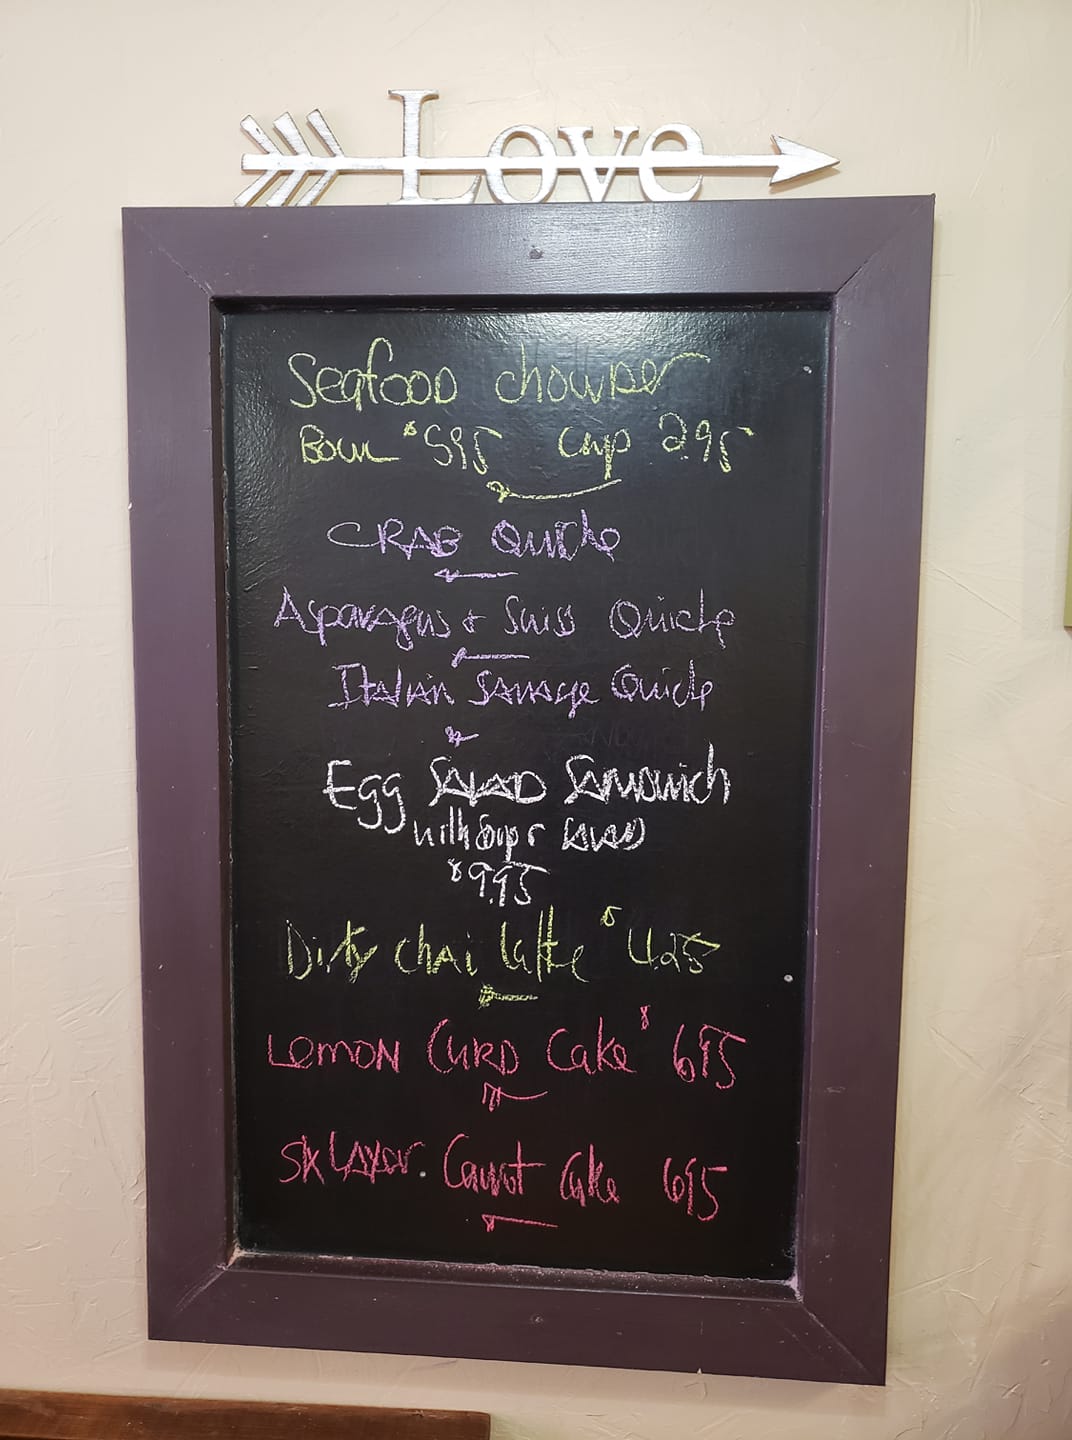 Love
Seafood chowder
Bowl $595 cup 2.95
CRAB Quiche
Asparagus & Swiss Quiche
Italian Sausage Quiche
Egg SALAD SANDWich
with Soup or SALAD
$9.95
Dirty chai latte $425
LEMON CURD Cake $695
Six LAYer Carrot Cake 695